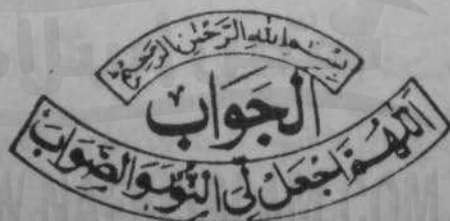 بِسْمِ اللهِ الرَّحْمٰنِ الرَّحِيْمِ
اَلجَوَابْ
اَللّٰهُمَّ اجْعَلْ لِّی النُّوْرَ وَالصَّوَابَ